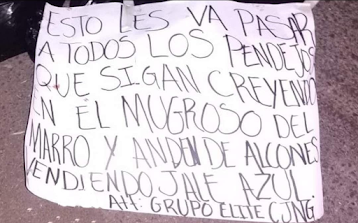 ESTO LES VA PASAR
A TODOS LOS PENDEJOS
QUE SIGAN CREYENDO
EN EL MUGROSO DEL
MARRO Y ANDEN DE ALCONES
VENDIENDO JALE AZUL.
ATT: GRUPO ELITE CJNG